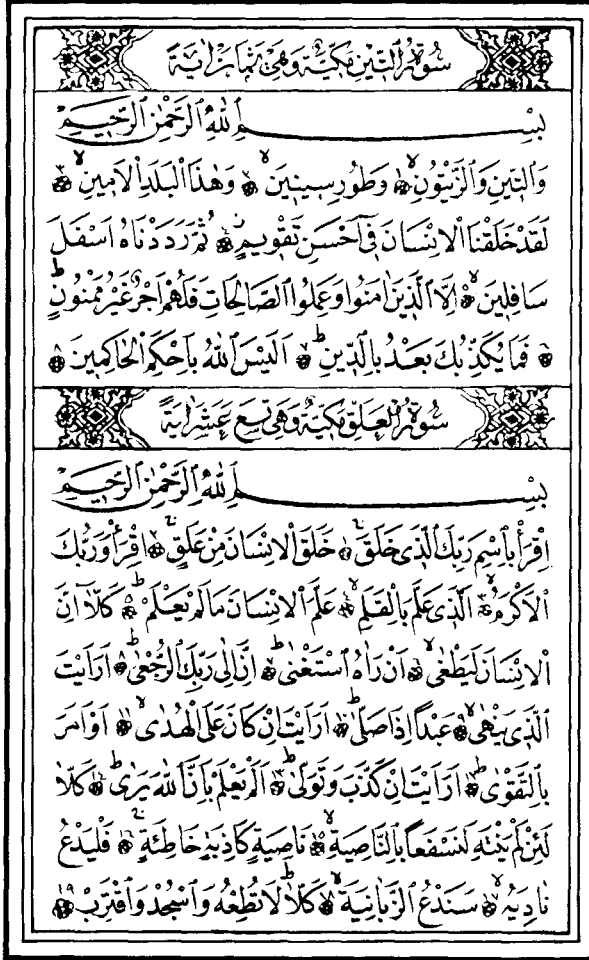 سُورَةُ التِّينِ مَكِّيَّةٌ وَهِيَ ثَمَانِ اٰيَةً
بِسْمِ اللّٰهِ الرَّحْمٰنِ الرَّحِيمِ
وَالتِّينِ وَالزَّيْتُونِۙ ﴿١﴾ وَطُورِ سِينِينَۙ ﴿٢﴾ وَهٰذَا الْبَلَدِ الْاَمِينِۙ ﴿٣﴾
لَقَدْ خَلَقْنَا الْاِنْسَانَ فِٓي اَحْسَنِ تَقْوِيمٍۘ ﴿٤﴾ ثُمَّ رَدَدْنَاهُ اَسْفَلَ
سَافِلِينَۙ ﴿٥﴾ اِلَّا الَّذِينَ اٰمَنُوا وَعَمِلُوا الصَّالِحَاتِ فَلَهُمْ اَجْرٌ غَيْرُ مَمْنُونٍۜ
﴿٦﴾ فَمَا يُكَذِّبُكَ بَعْدُ بِالدِّينِۜ ﴿٧﴾ اَلَيْسَ اللّٰهُ بِاَحْكَمِ الْحَاكِمِينَ ﴿٨﴾
سُورَةُ الْعَلَقِ مَكِّيَّةٌ وَهِيَ تِسْعَ عَشَرَ اٰيَةً
بِسْمِ اللّٰهِ الرَّحْمٰنِ الرَّحِيمِ
اِقْرَأْ بِاسْمِ رَبِّكَ الَّذِي خَلَقَۚ ﴿١﴾ خَلَقَ الْاِنْسَانَ مِنْ عَلَقٍۚ ﴿٢﴾ اِقْرَأْ وَرَبُّكَ
الْاَكْرَمُۙ ﴿٣﴾ اَلَّذِي عَلَّمَ بِالْقَلَمِۙ ﴿٤﴾ عَلَّمَ الْاِنْسَانَ مَا لَمْ يَعْلَمْۜ ﴿٥﴾ كَلَّٓا اِنَّ
الْاِنْسَانَ لَيَطْغٰىۙ ﴿٦﴾ اَنْ رَاٰهُ اسْتَغْنٰىۜ ﴿٧﴾ اِنَّ اِلٰى رَبِّكَ الرُّجْعٰىۜ ﴿٨﴾ اَرَاَيْتَ
الَّذِي يَنْهٰىۙ ﴿٩﴾ عَبْدًا اِذَا صَلّٰىۜ ﴿١٠﴾ اَرَاَيْتَ اِنْ كَانَ عَلَى الْهُدٰىۙ ﴿١١﴾ اَوْ اَمَرَ
بِالتَّقْوٰىۜ ﴿١٢﴾ اَرَاَيْتَ اِنْ كَذَّبَ وَتَوَلّٰىۜ ﴿١٣﴾ اَلَمْ يَعْلَمْ بِاَنَّ اللّٰهَ يَرٰىۜ ﴿١٤﴾ كَلَّا
لَئِنْ لَمْ يَنْتَهِ لَنَسْفَعًا بِالنَّاصِيَةِۙ ﴿١٥﴾ نَاصِيَةٍ كَاذِبَةٍ خَاطِئَةٍۚ ﴿١٦﴾ فَلْيَدْعُ
نَادِيَهُۙ ﴿١٧﴾ سَنَدْعُ الزَّبَانِيَةَۙ ﴿١٨﴾ كَلَّاۜ لَا تُطِعْهُ وَاسْجُدْ وَاقْتَرِبْ ﴿١٩﴾